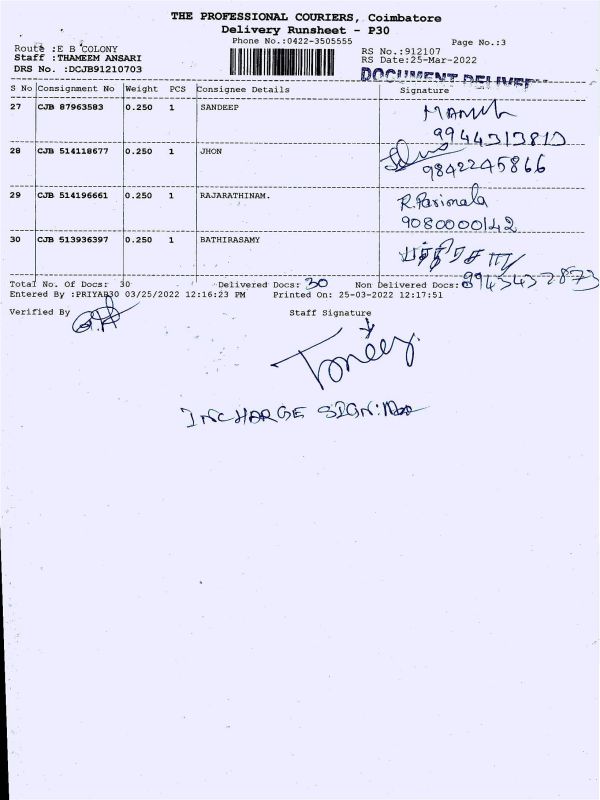 THE PROFESSIONAL COURIERS, Coimbatore
Delivery Runsheet - P30
Phone No.:0422-3505555 Page No.:3
Route :E B COLONY RS No.:912107
Staff :THAMEEM ANSARI RS Date:25-Mar-2022
DRS No. :DCJB91210703
DOCUMENT
S No Consignment No Weight PCS Consignee Details Signature
27 CJB 87963583 0.250 1 SANDEEP
28 CJB 514118677 0.250 1 JHON
9842245866
29 CJB 514196661 0.250 1 RAJARATHINAM. R. Parimala
9080000142
30 CJB 513936397 0.250 1 BATHIRASAMY
Total No. Of Docs: 30 Delivered Docs: 30 Non Delivered Docs:
Entered By :PRIYAP30 03/25/2022 12:16:23 PM Printed On: 25-03-2022 12:17:51
Verified By Staff Signature
INCHARGE SIGN: